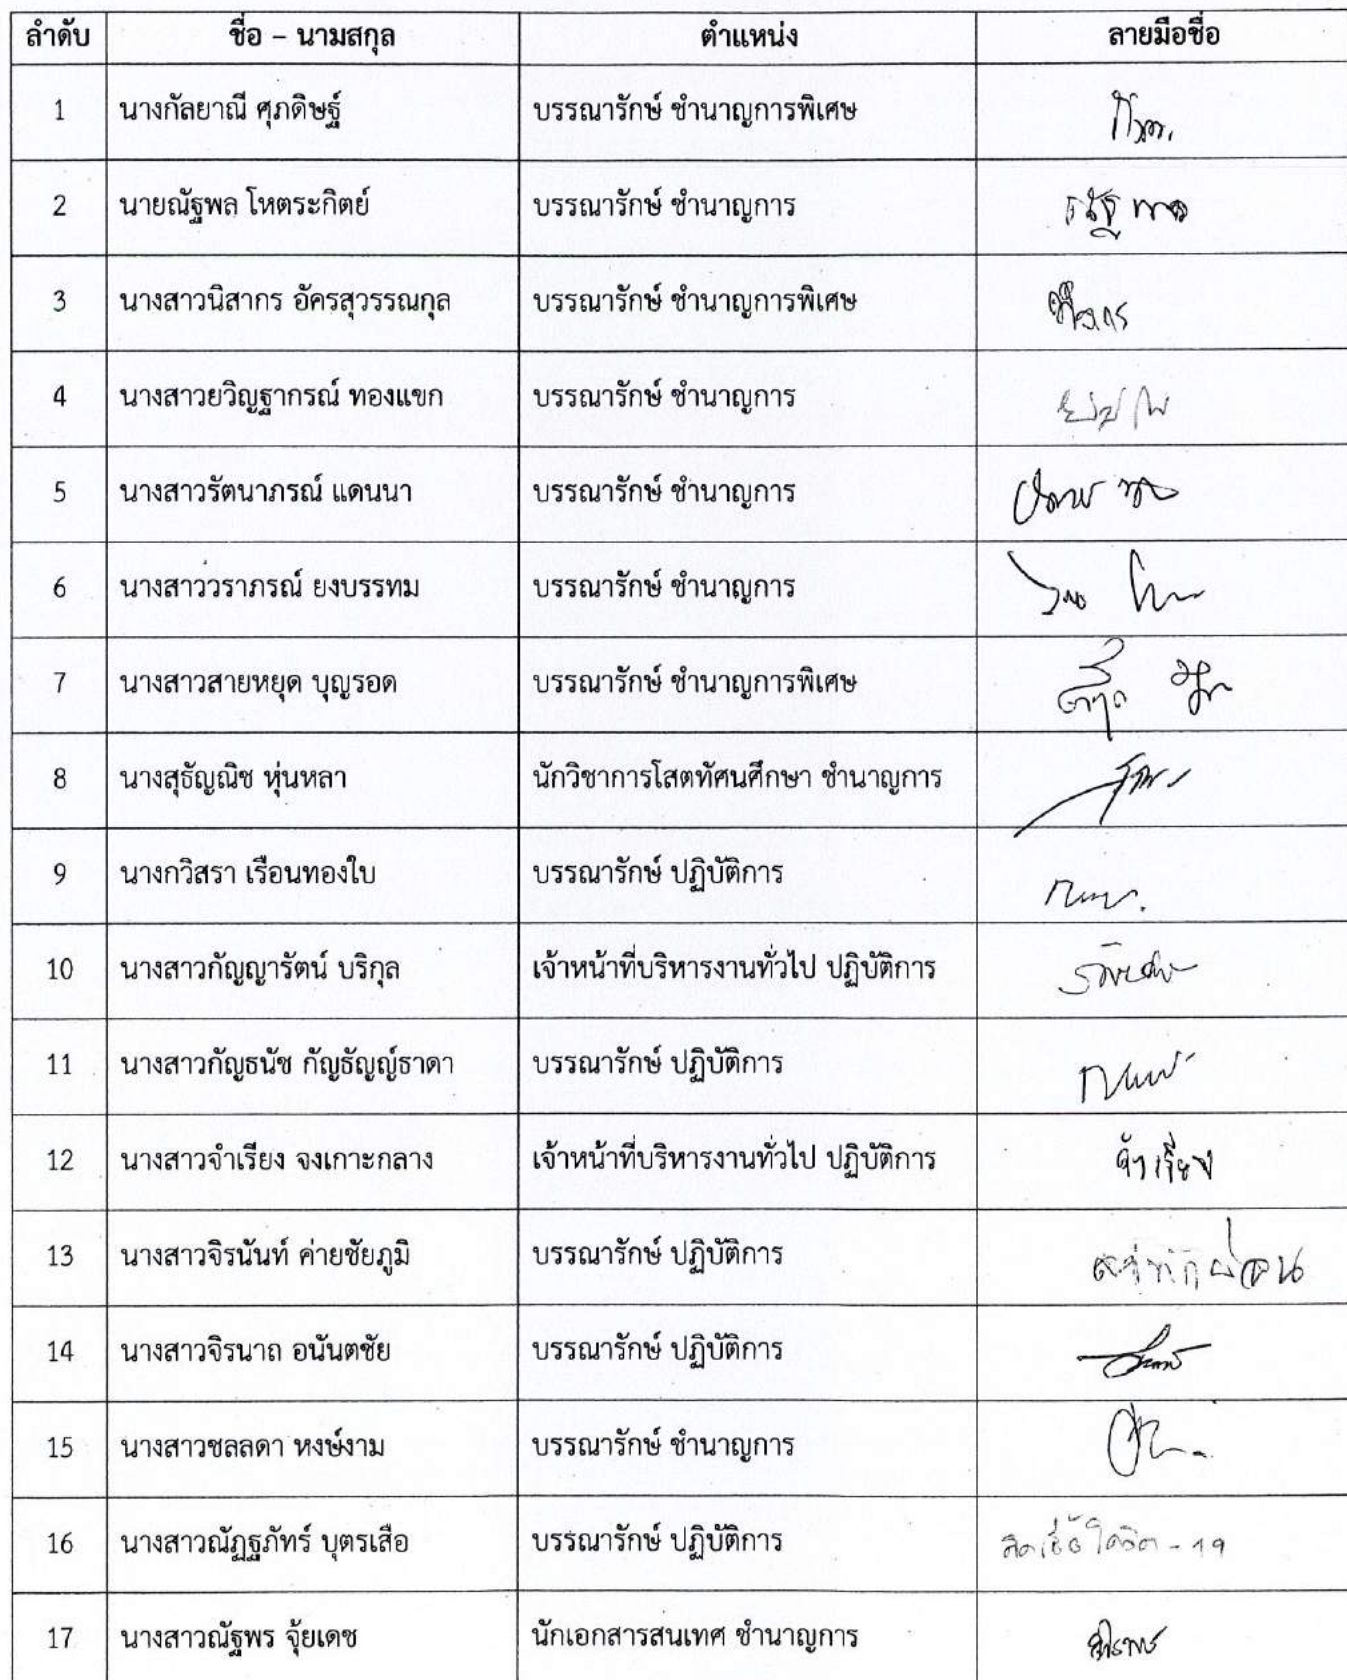 ลำดับ ชื่อ – นามสกุล ตำแหน่ง ลายมือชื่อ
1 นางกัลยาณี ศุภดิษฐ์ บรรณารักษ์ ชำนาญการพิเศษ
2 นายณัฐพล โหตระกิตย์ บรรณารักษ์ ชำนาญการ ณัฐพล
3 นางสาวนิสากร อัครสุวรรณกุล บรรณารักษ์ ชำนาญการพิเศษ
4 นางสาวยวิญฐากรณ์ ทองแขก บรรณารักษ์ ชำนาญการ
5 นางสาวรัตนาภรณ์ แดนนา บรรณารักษ์ ชำนาญการ
6 นางสาววราภรณ์ ยงบรรทม บรรณารักษ์ ชำนาญการ
7 นางสาวสายหยุด บุญรอด บรรณารักษ์ ชำนาญการพิเศษ
8 นางสุธัญณิช หุ่นหลา นักวิชาการโสตทัศนศึกษา ชำนาญการ
9 นางกวิสรา เรือนทองใบ บรรณารักษ์ ปฏิบัติการ
10 นางสาวกัญญารัตน์ บริกุล เจ้าหน้าที่บริหารงานทั่วไป ปฏิบัติการ
11 นางสาวกัญธนัช กัญธัญญ์ธาดา บรรณารักษ์ ปฏิบัติการ
12 นางสาวจำเรียง จงเกาะกลาง เจ้าหน้าที่บริหารงานทั่วไป ปฏิบัติการ จำเรียง
13 นางสาวจิรนันท์ ค่ายชัยภูมิ บรรณารักษ์ ปฏิบัติการ
14 นางสาวจิรนาถ อนันตชัย บรรณารักษ์ ปฏิบัติการ
15 นางสาวชลลดา หงษ์งาม บรรณารักษ์ ชำนาญการ
16 นางสาวณัฏฐภัทร์ บุตรเสือ บรรณารักษ์ ปฏิบัติการ ติดเชื้อโควิด - 19
17 นางสาวณัฐพร จุ้ยเดช นักเอกสารสนเทศ ชำนาญการ